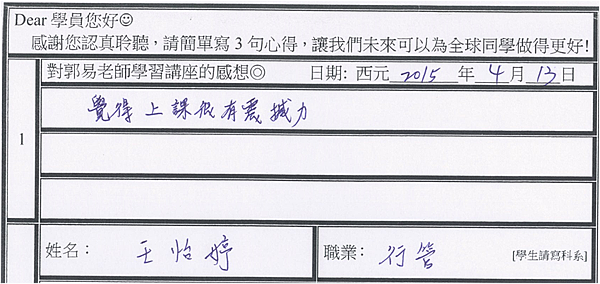 Dear 學員您好☺
感謝您認真聆聽，請簡單寫 3 句心得，讓我們未來可以為全球同學做得更好!
對郭易老師學習講座的感想◎ 日期: 西元 2015 年 4 月 13 日
1
覺得上課很有震撼力
姓名： 王怡婷 職業： 行管 [學生請寫科系]